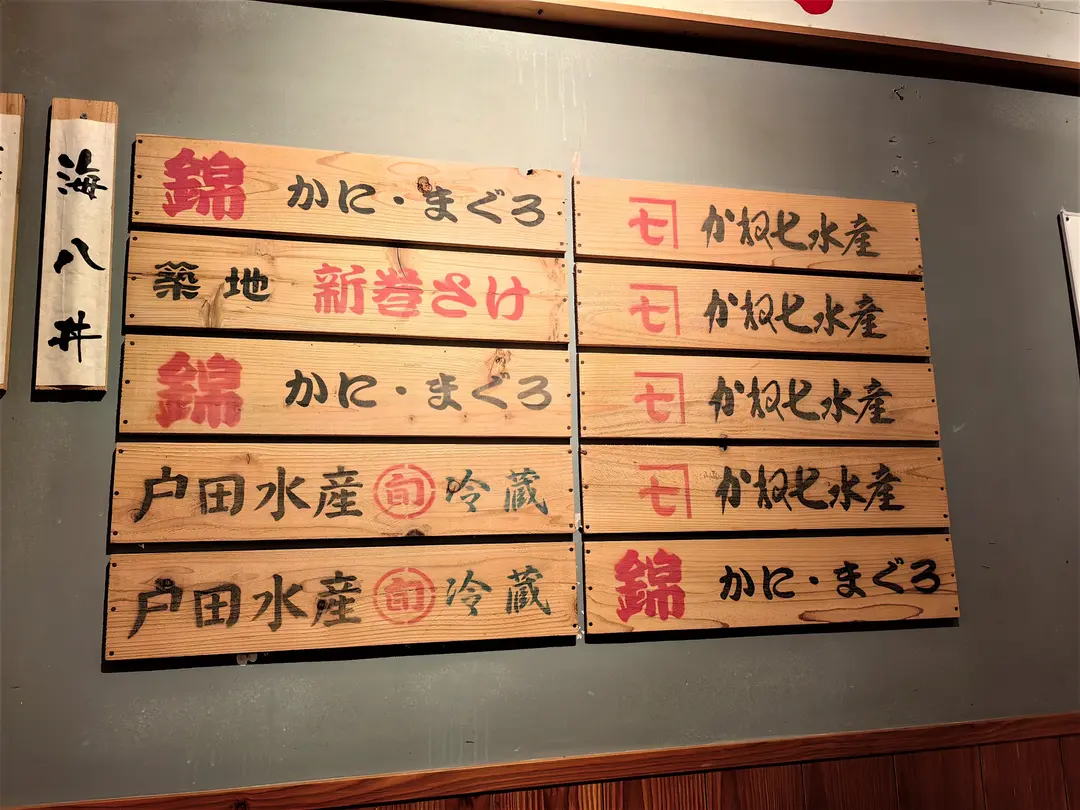 海八丼
錦 かに・まぐろ
築地 新巻さけ
錦 かに・まぐろ
戸田水産 旬 冷蔵
戸田水産 旬 冷蔵
七 かね七水産
七 かね七水産
七 かね七水産
七 かね七水産
錦 かに・まぐろ